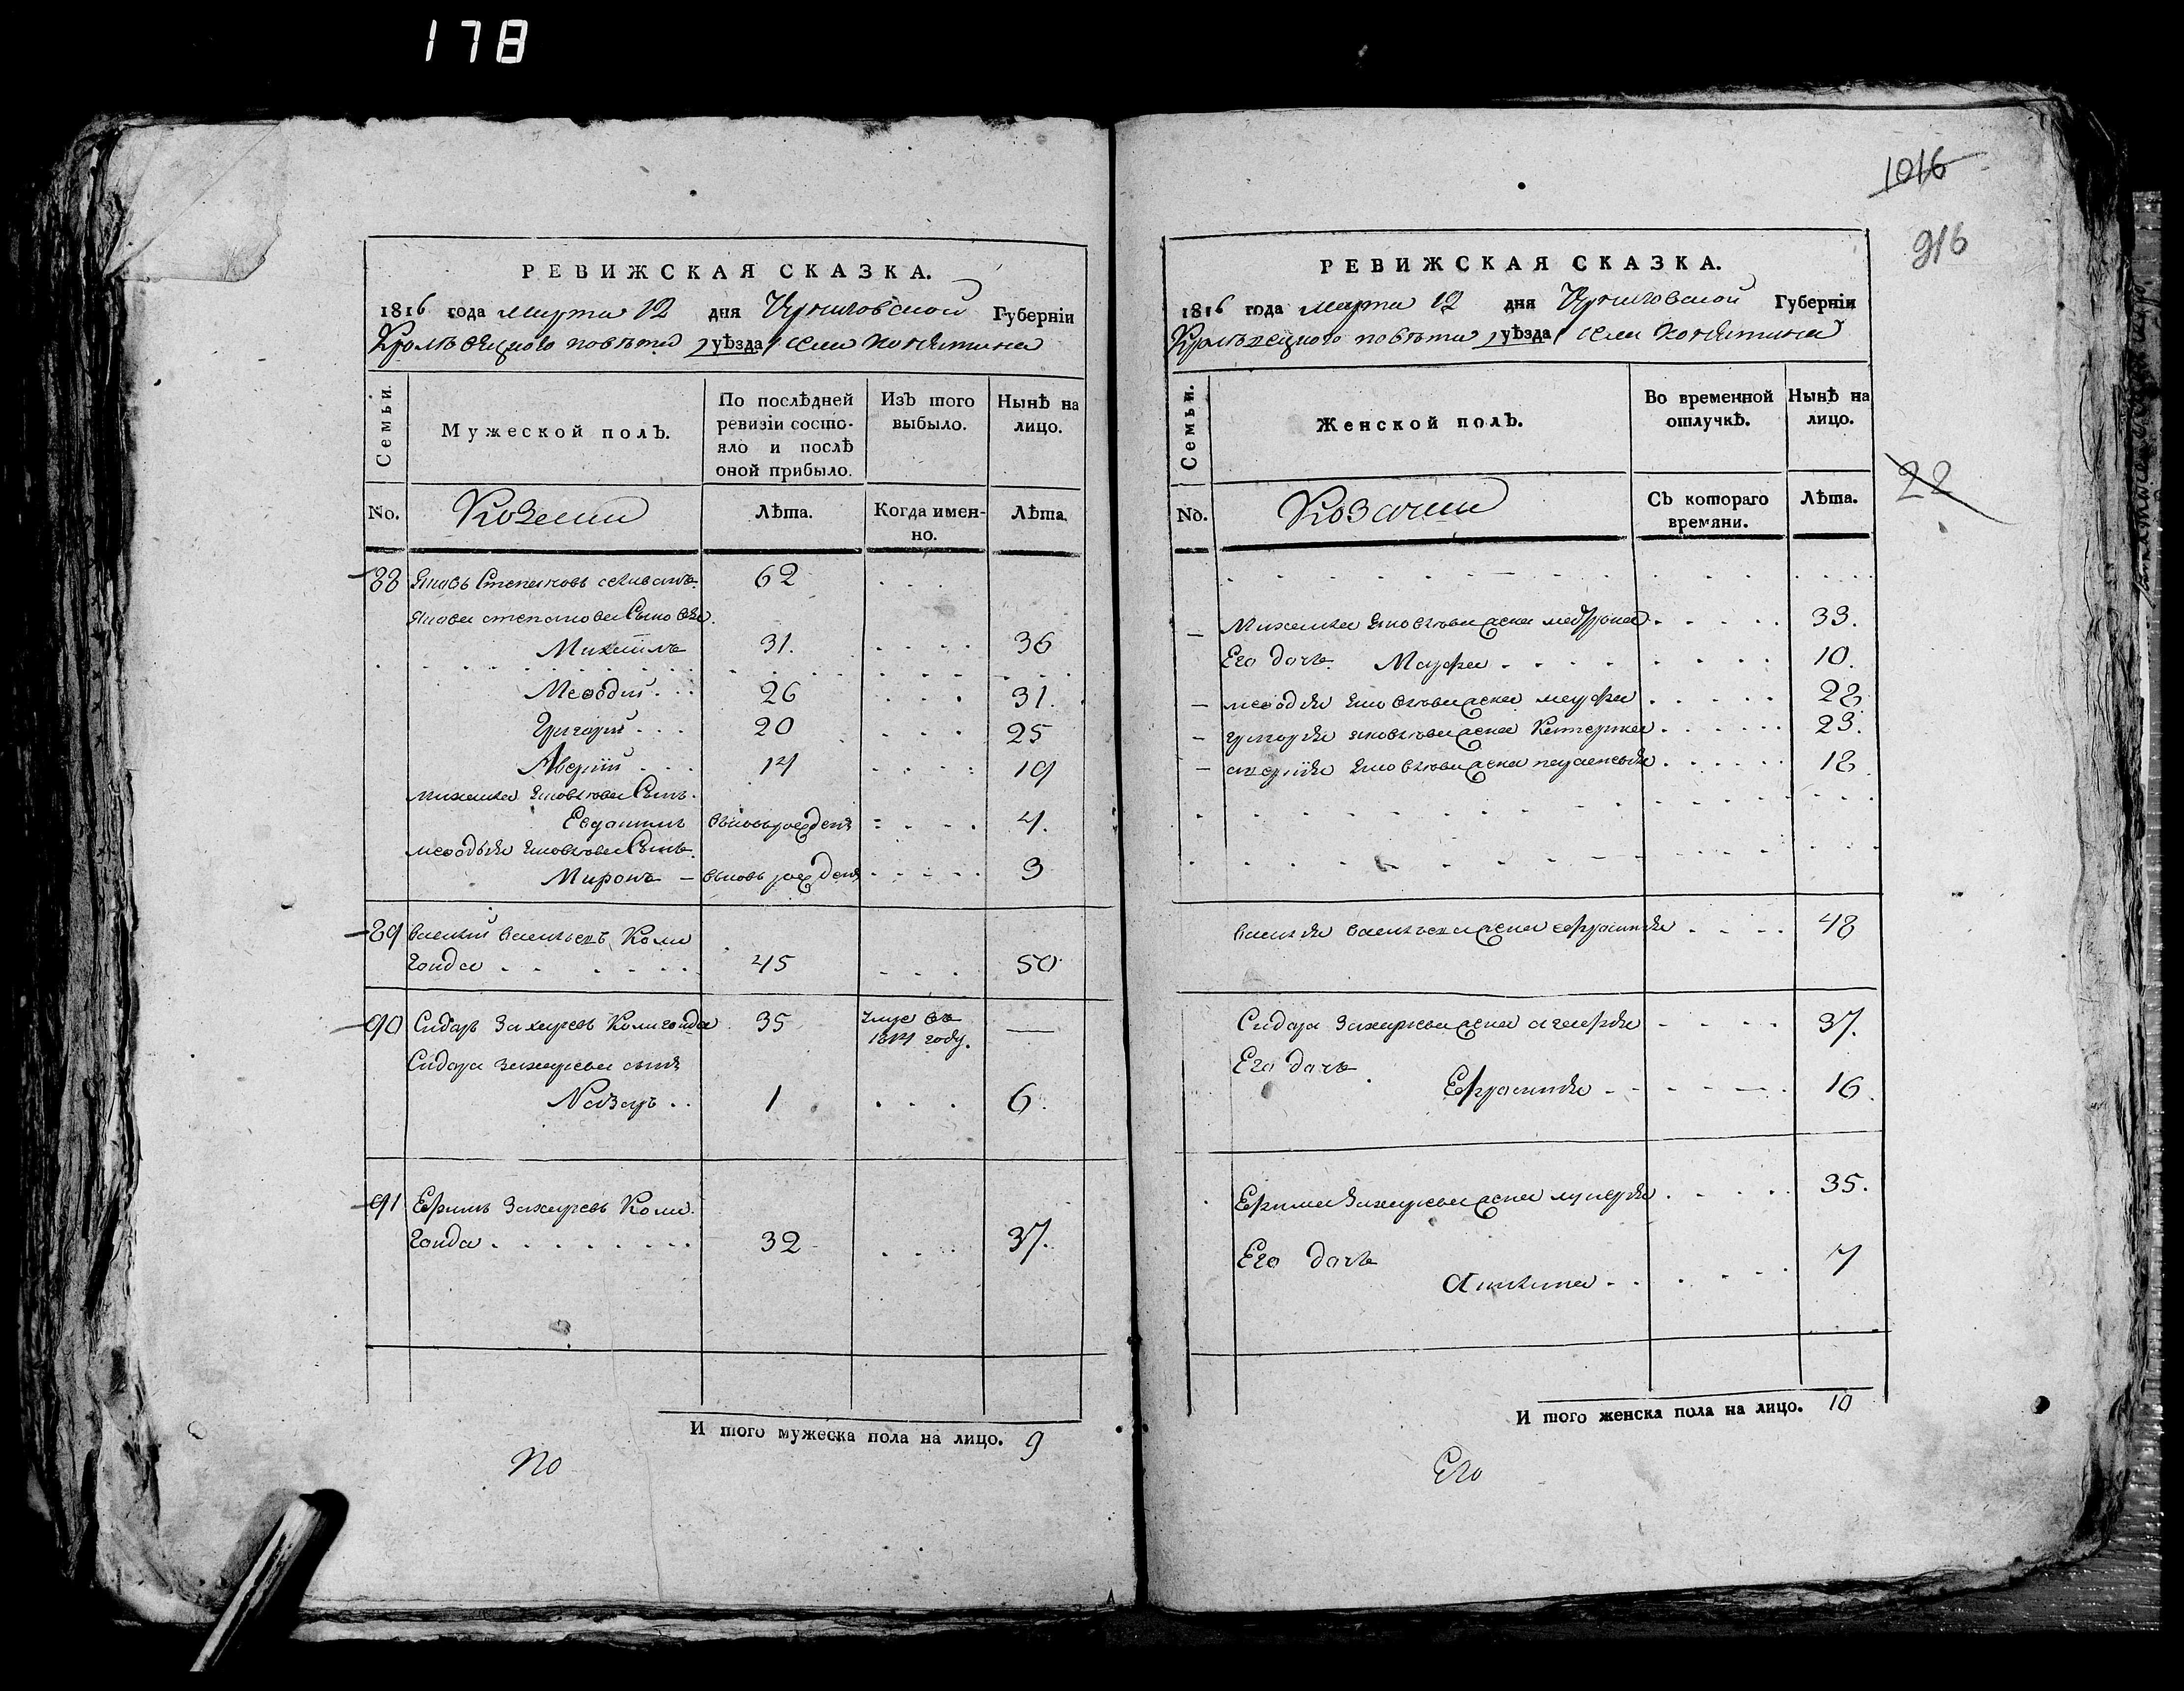 178
РЕВИЖСКАЯ СКАЗКА.
1816 года марта 12 дня Черниговской Губерніи
Кролевецкого повета уѣзда села
Семьи.
Мужеской полъ.
По послѣдней ревизіи состо-
яло и послѣ
оной прибыло.
Изъ того
выбыло.
Нынѣ на
лицо.
No.
Козаки
Лѣта.
Когда имен-
но.
Лѣта.
88 Яковъ Степановъ 62
Якова степанова Сыновья
Михаилъ 31. 36
Меѳодий 26 31.
Григорий 20 25
Аверкій 14 19
михаила яковлева Сынъ
Евдокимъ вновьрожденъ 4.
меѳодия яковлева Сынъ
Миронъ вновь рожденъ 3
89 василий васильевъ Коли
гонда 45 50
90 Сидоръ Захаревъ Колигонда 35 умре въ 1814 году. —
Сидора захарева сынъ
Назаръ 1 6.
91 Ефимъ Захаревъ Коли
гонда 32 37.
И того мужеска пола на лицо. 9
No
1016
916
РЕВИЖСКАЯ СКАЗКА.
1816 года марта 12 дня Черниговской Губерніи
Кролевецкого повета уѣзда села
Семьи.
Женской полъ.
Во временной
отлучкѣ.
Нынѣ на
лицо.
22
No.
Козачки
Съ котораго
времяни.
Лѣта.
Михаила яковлева жена 33.
Его дочь Марфа 10.
меѳодия яковлева жена марфа 28
григория яковлева жена Катерина 23.
аверкія яковлева жена 18
василия васильева жена ефросиния 48
Сидора захарева жена агафия 37.
Его дочь
Ефросиния 16
Ефима Захарева жена 35.
Его дочь
7
И того женска пола на лицо. 10
Его